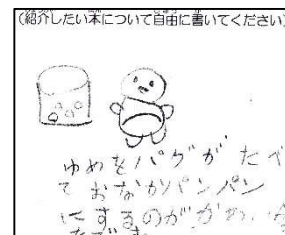 (紹介したい本について自由に書いてください)
ゆめをバグがたべ
ておなかパンパン
にするのがかわい